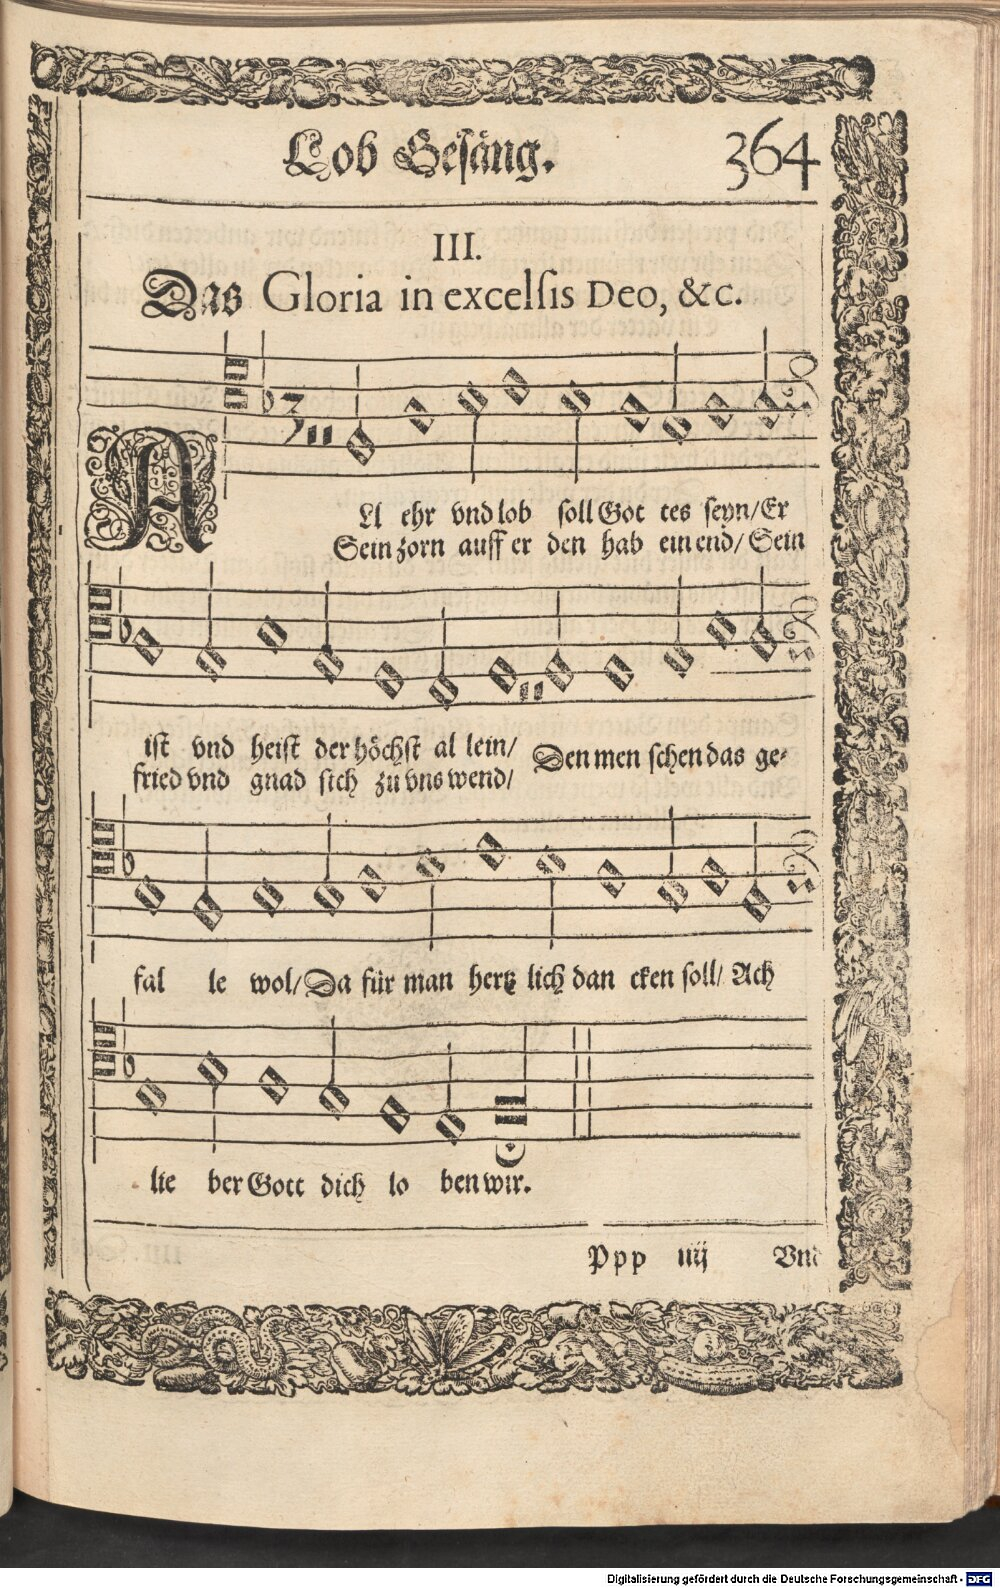 Lob Gesäng. 364
III.
Das Gloria in excelsis Deo, &c.
3
All ehr vnd lob soll Got tes seyn/ Er
Sein zorn auff er den hab ein end/ Sein
ist vnd heist der höchst al lein/ Den men schen das ge-
fried vnd gnad sich zu vns wend/
fal le wol/ Da für man hertz lich dan cken soll/ Ach
lie ber Gott dich lo ben wir.
Ppp iiij Vnd
Digitalisierung gefördert durch die Deutsche Forschungsgemeinschaft - DFG